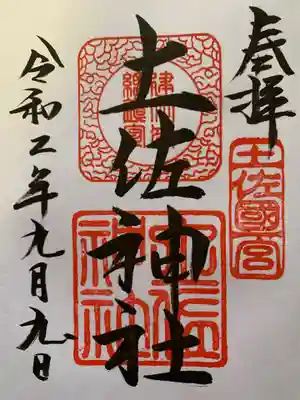 奉拝
土佐國一宮
土佐神社
土佐神社
令和二年九月九日